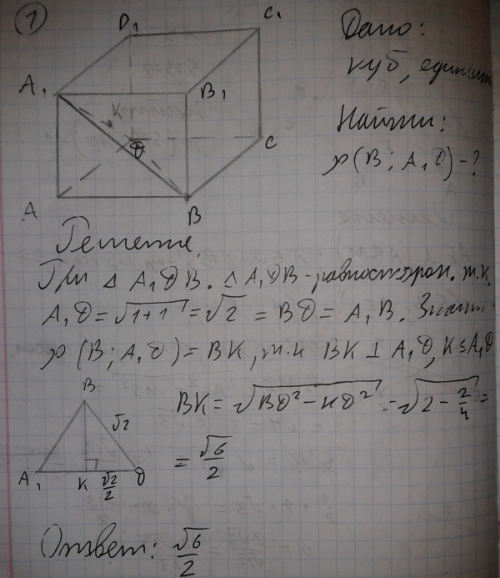 1
D₁
C₁
A₁
B₁
K
D
C
A
B
Дано:
куб, единичн
Найти:
ρ(B; A₁D) - ?
Решение.
При Δ A₁DB. Δ A₁DB - равносторон. т.к.
A₁D = √1+1 = √2 = BD = A₁B. Значит
ρ(B; A₁D) = BK, т.к BK ⊥ A₁D, K ∈ A₁D
BK = √BD² - KD² = √2 - 2/4 =
= √6/2
B
√2
A₁
K
√2/2
D
Ответ: √6/2